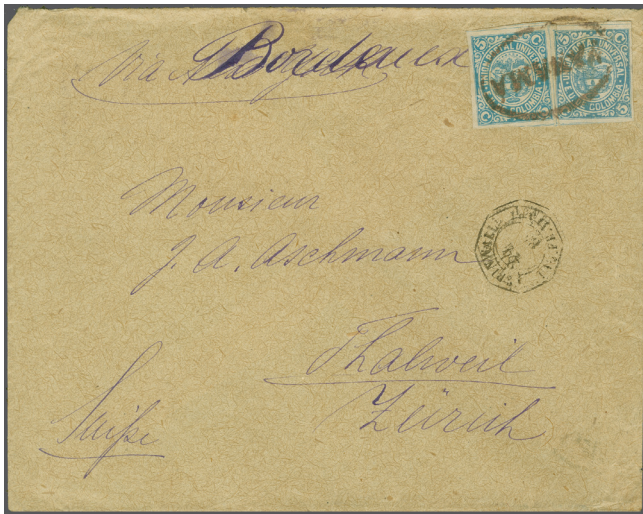 via Bordeaux
5 C 5
UNION POSTAL UNIVERSAL
COLOMBIA
5 C 5
UNION POSTAL UNIVERSAL
COLOMBIA
PANAMA
Monsieur
J. A. Aschmann
Thalweil
Zürich
Suiße